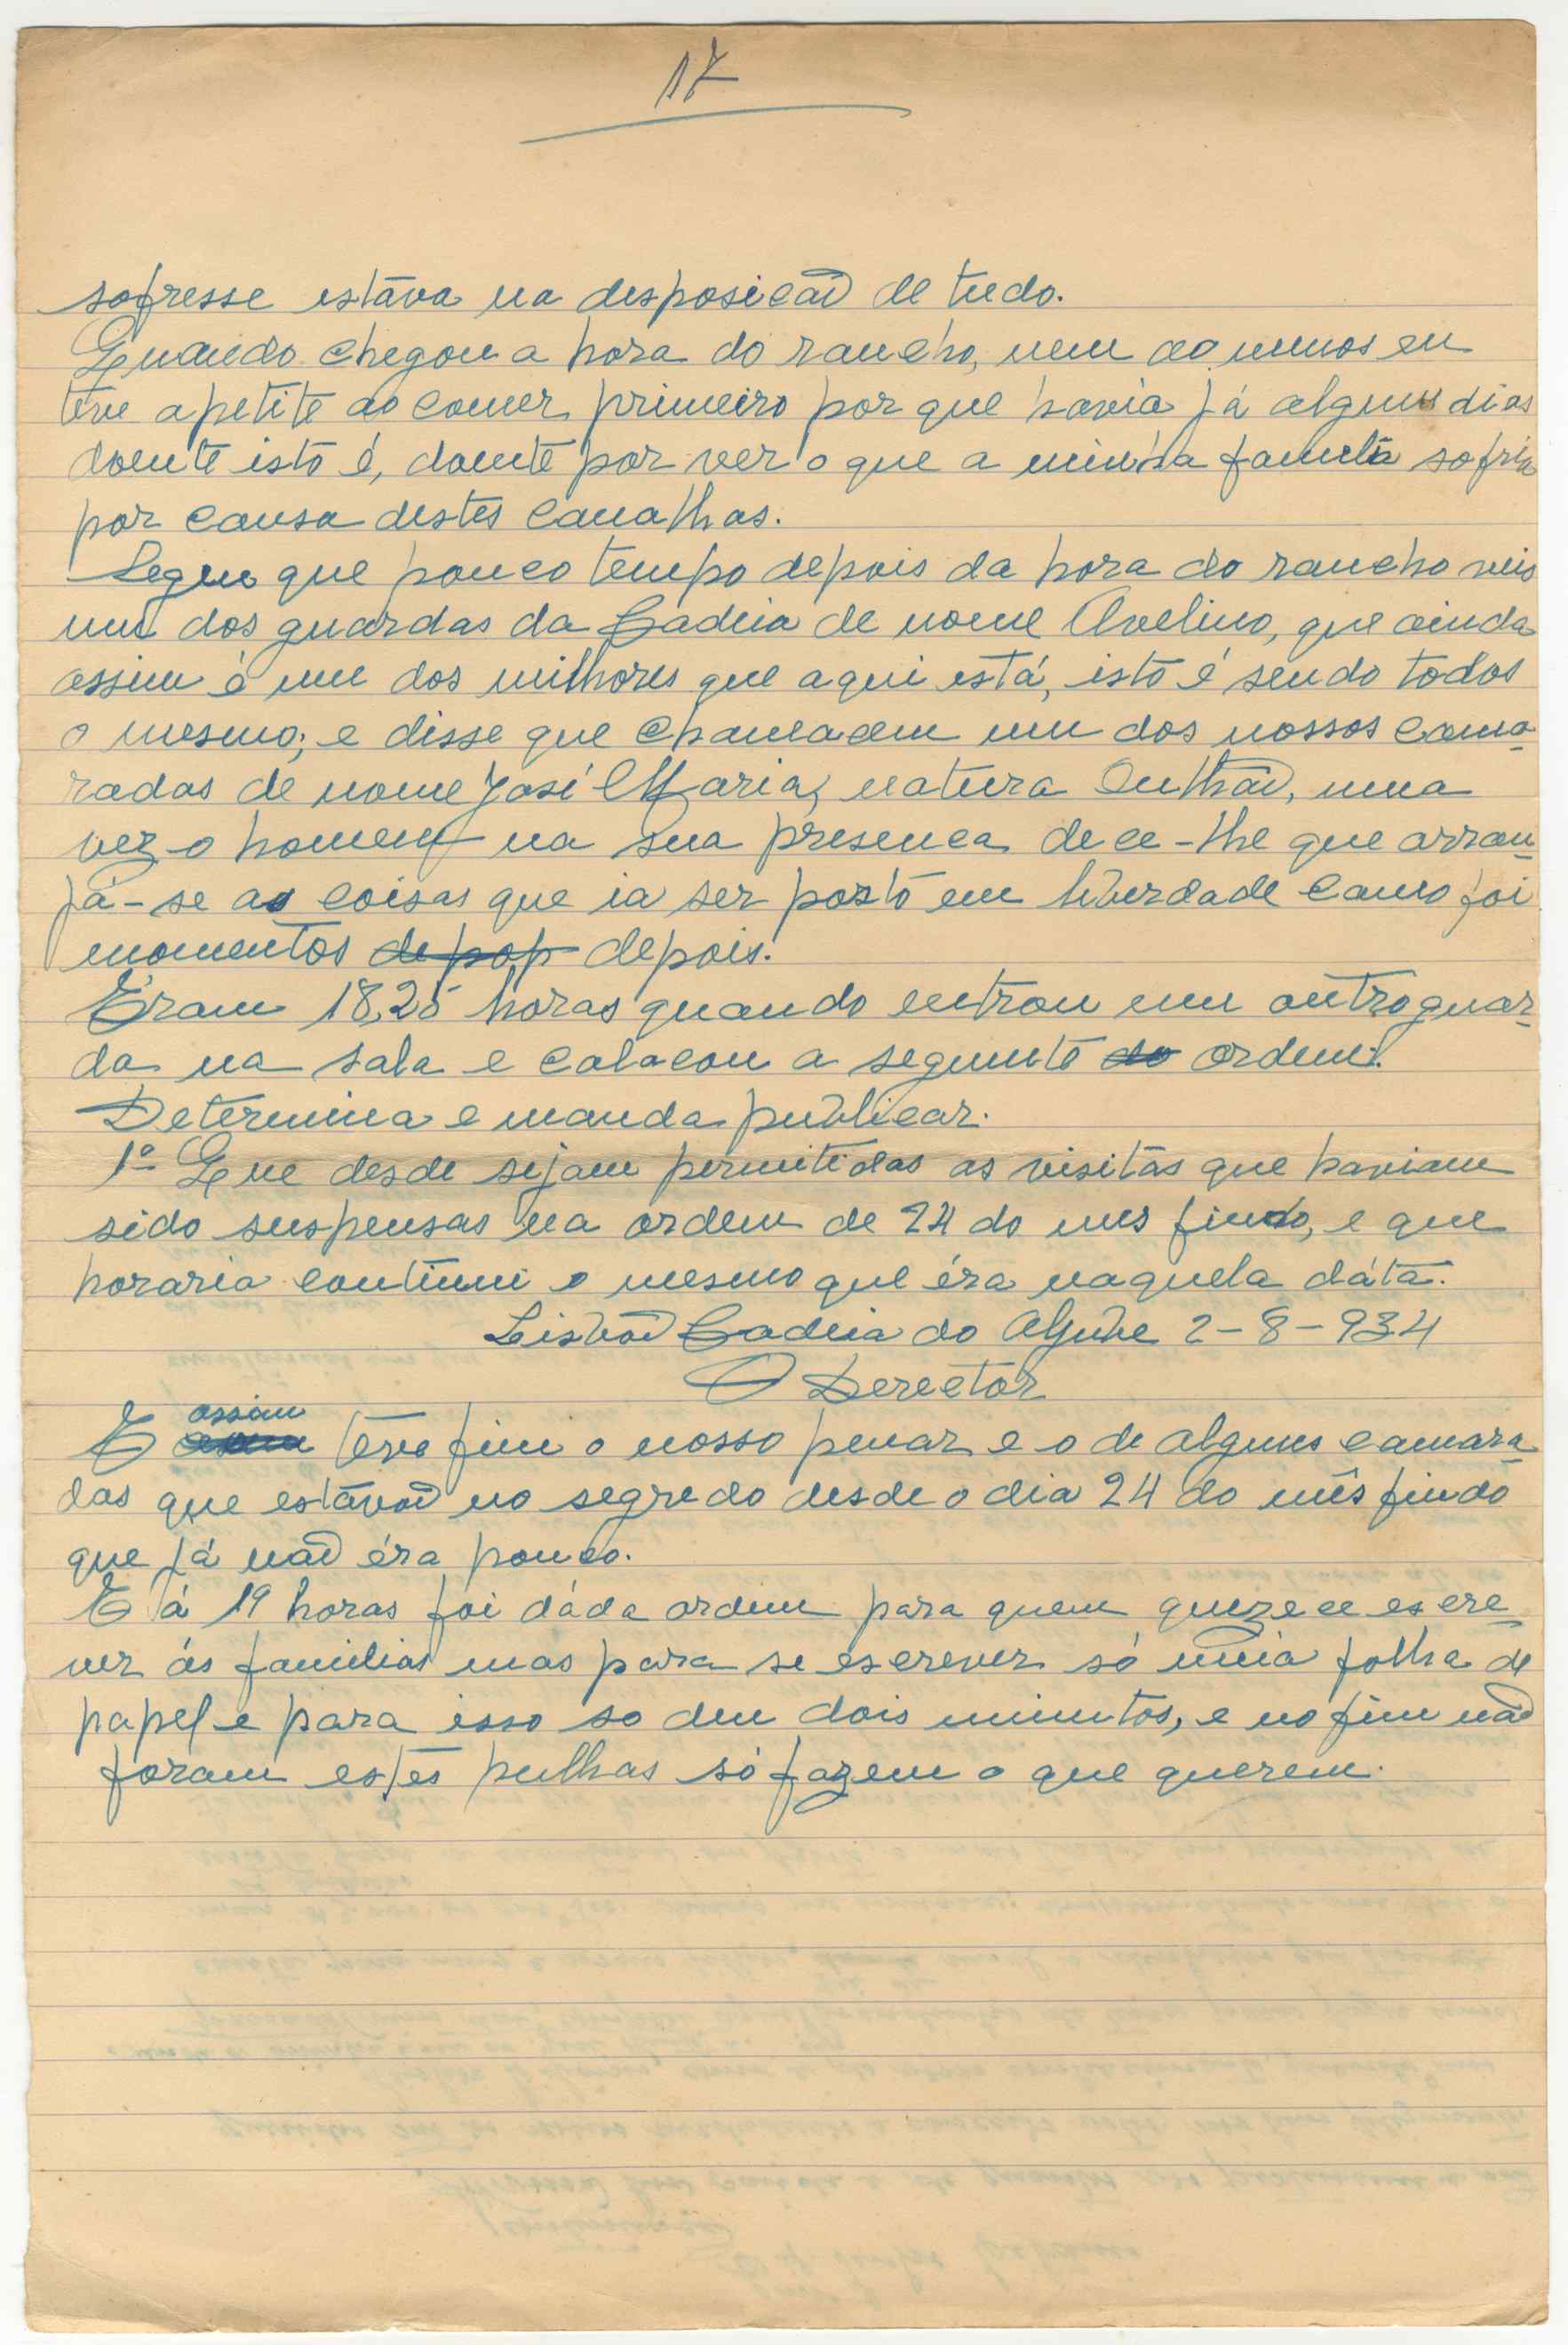 17
sofresse estáva na desposicão de tudo.
Quando chegou a hora do rancho, nem ao menos eu
teve apetite ao comer primeiro por que havia já alguns dias
doente isto é, doente por ver o que a minha familia sofria
por causa destes canalhas.
Segue que pouco tempo depois da hora do rancho veio
um dos guardas da Cadeia de nome Avelino, que ainda
assim é um dos milhores que aqui está, isto é sendo todos
o mesmo; e disse que chamacem um dos nossos cama-
radas de nome José Maria, natura Oulhão, uma
vez o homem na sua presenca dece-lhe que arran-
já-se as coisas que ia ser posto em liberdade como foi
momentos depop depois.
Éram 18,25 horas quando entrou um outro guar-
da na sala e calacou a segunte do ordem.
Determina e manda publicar.
1º Que desde sejam permitidas as visitas que haviam
sido suspensas na ordem de 24 do mes findo, e que
horaria continui o mesmo que éra naquela dáta.
Lisbôa Cadeia do Aljube 2-8-934
O Derector
E assim teve fim o nosso penar e o de alguns camara-
das que estávão no segredo desde o dia 24 do mês findo
que já não éra pouco.
E á 19 horas foi dáda ordem para quem quezece escre-
ver ás familias mas para se escrever só uma folha de
papel e para isso so deu dois minutos, e no fim não
foram estes pulhas só fazem o que querem.